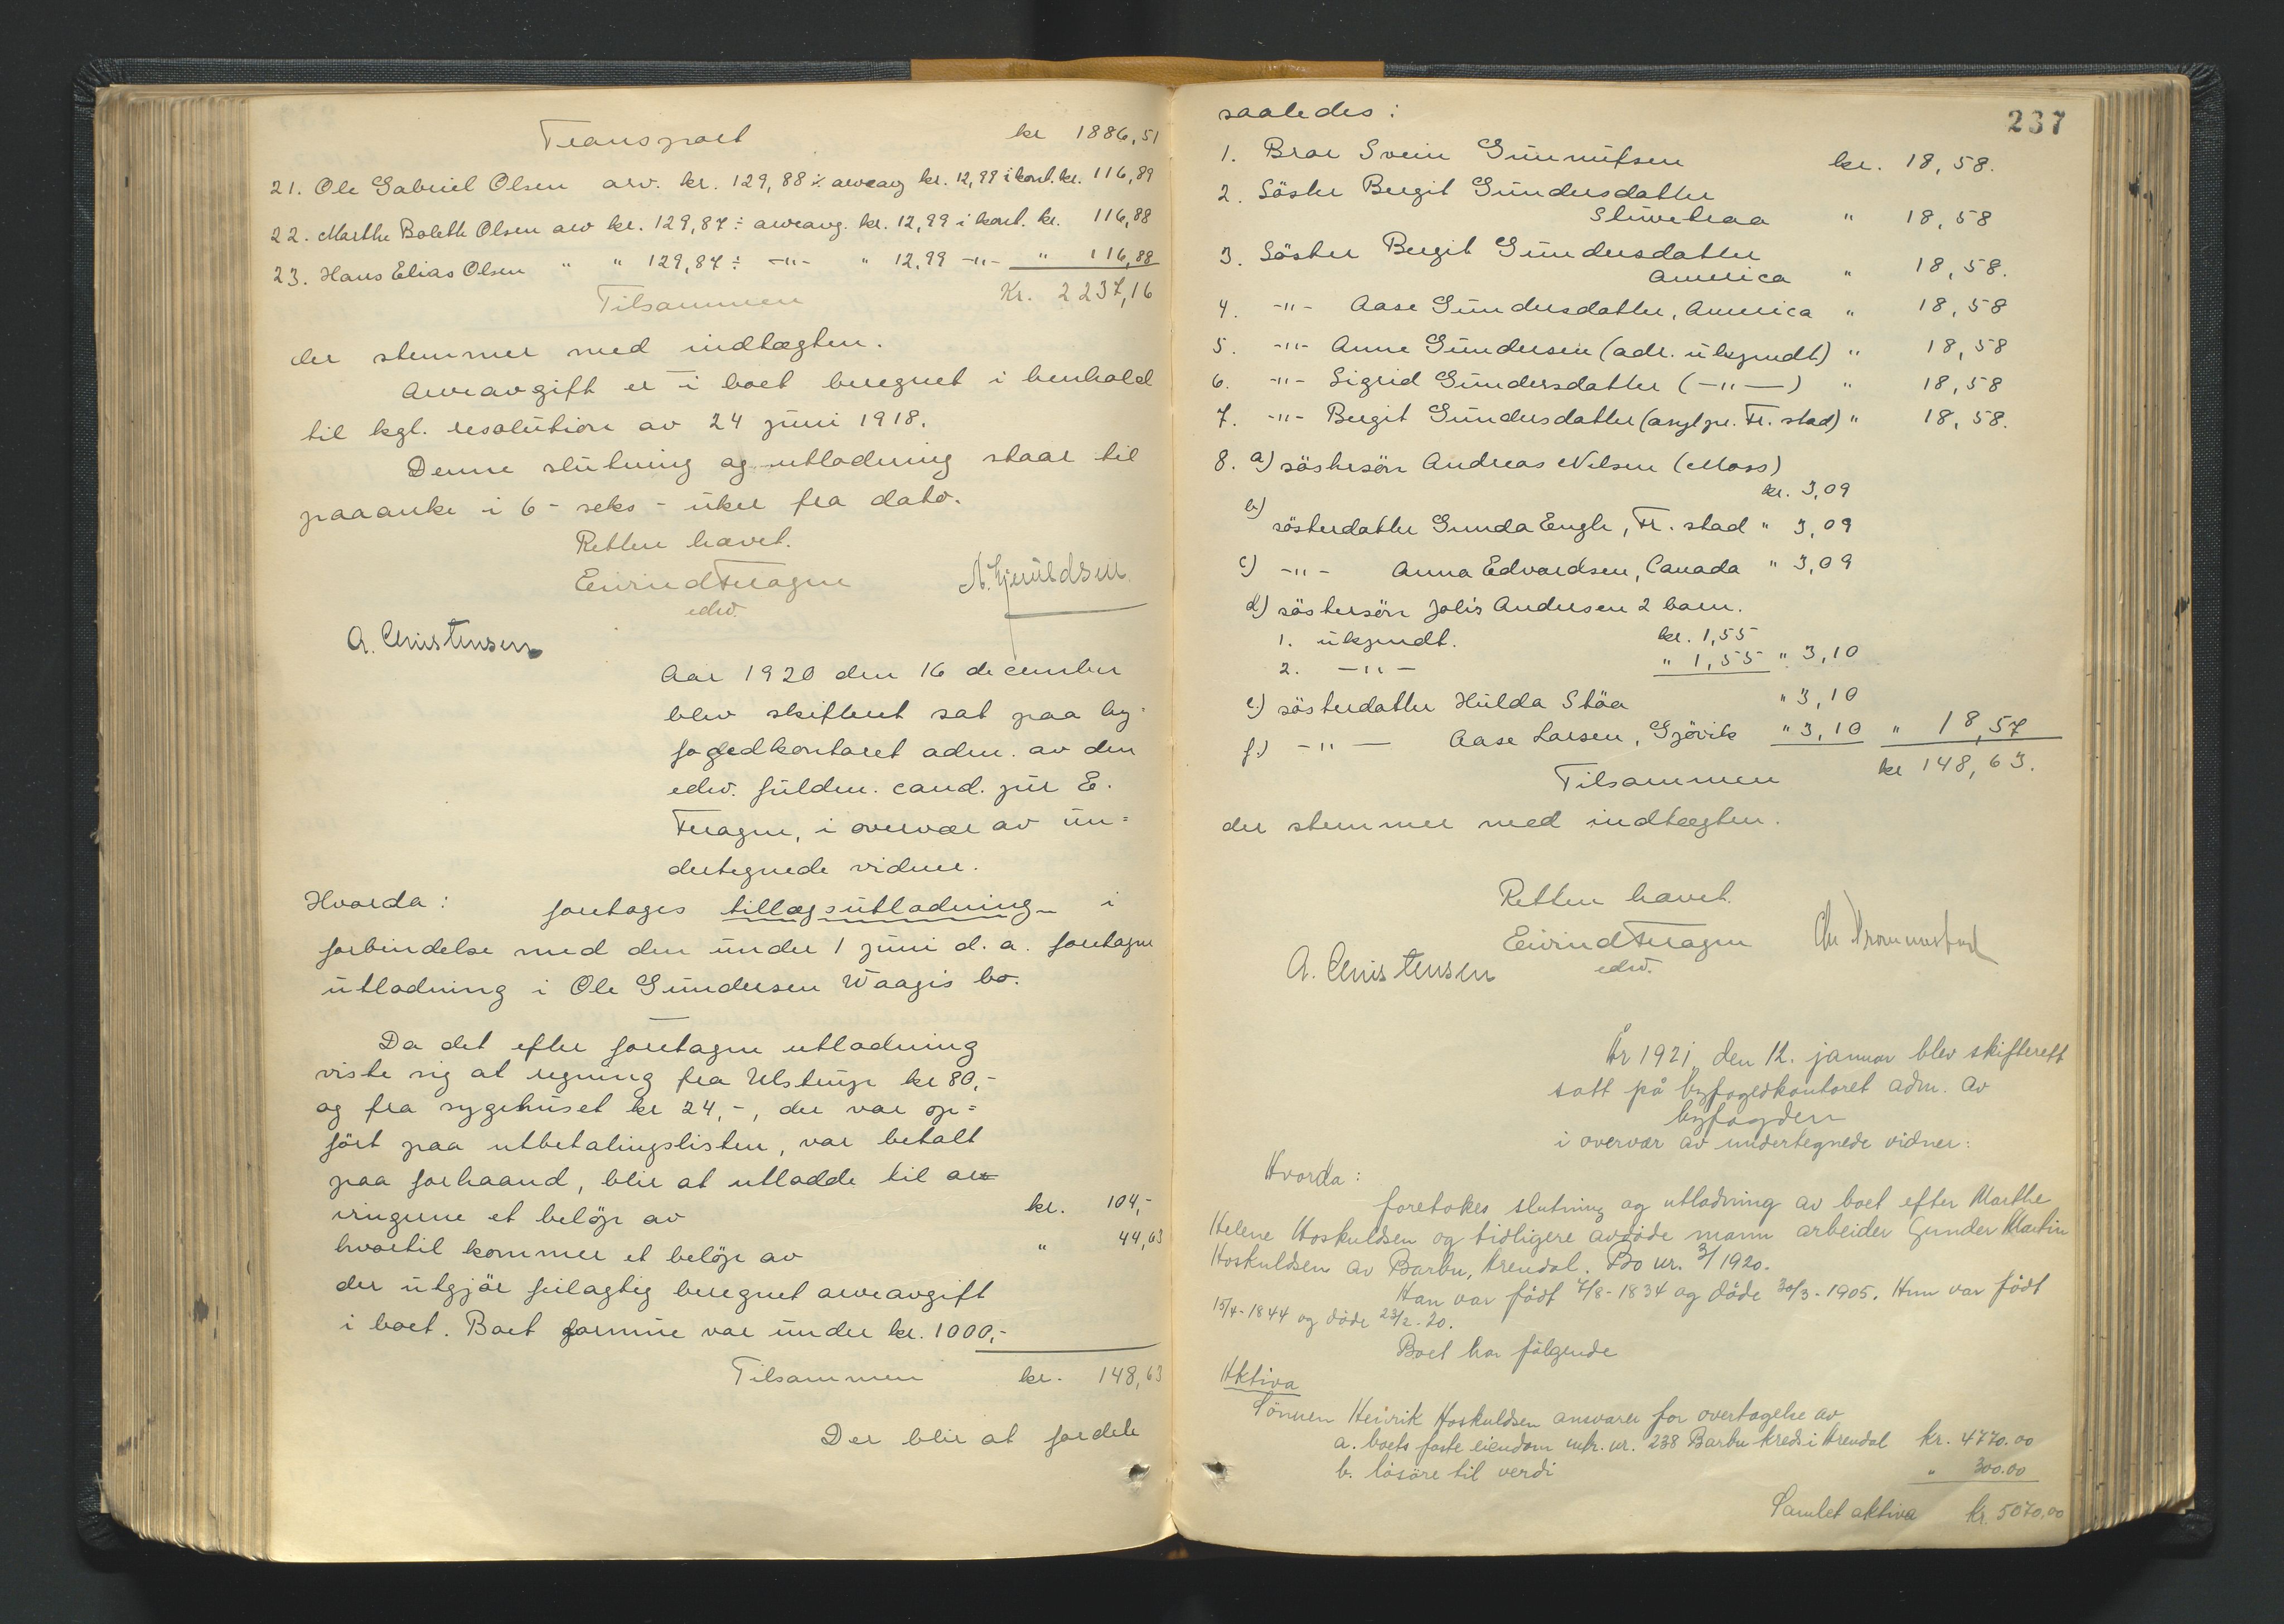 Transport kr 1886,51
21. Ole Gabriel Olsen arv. kr. 129,88 ÷ arveavg kr. 12,99 i kont. kr. 116,89
22. Marthe Bolette Olsen arv kr. 129,87 ÷ arveavg. kr. 12,99 i kont. kr. 116,88
23. Hans Elias Olsen " " 129,87 ÷ -"- " 12,99 -"- " 116,88
Tilsammen Kr. 2237,16
der stemmer med indtægten.
Arveavgift er i boet beregnet i henhold
til kgl. resolution av 24 juni 1918.
Denne slutning og utlodning staar til
paaanke i 6 - seks - uker fra dato.
Retten hævet.
Eivind Fragne
edsv.
A. Christensen
Aar 1920 den 16 december
blev skifteret sat paa by-
fogedkontoret adm. av den
edsv. fuldm. cand. jur E.
Fragne, i overvær av un=
dertegnede vidner.
Hvorda: foretages tillægsutlodning i
forbindelse med den under 1 juni d. a. foretagne
utlodning i Ole Gundersen Waagis bo.
Da det efter foretagne utlodning
viste sig at regning fra Ulstrup kr 80,-
og fra sygehuset kr 24,-, der var op=
ført paa utbetalingslisten, var betalt
paa forhaand, blir at utlodde til arv
ingerne et beløp av kr. 104,-
hvortil kommer et beløp av " 44,63
der utgjør feilagtig beregnet arveavgift
i boet. Boet formue var under kr. 1000,-
Tilsammen kr. 148,63
Der blir at fordele
237
saaledes:
1. Bror Svein Gunnufsen kr. 18,58.
2. Søster Bergit Gundersdatter
" 18,58
3. Søster Bergit Gundersdatter
America " 18,58.
4. -"- Aase Gundersdatter, America " 18,58
5. -"- Anne Gundersen (adr. ukjendt) " 18,58
6. -"- Sigrid Gundersdatter (-"-) " 18,58
7. -"- Bergit Gundersdatter (asyl pr. Fr. stad) " 18,58.
8. a) søstersøn Andreas Nilsen (Moss)
kr. 3,09
b) søsterdatter Gunda Engh, Fr. stad " 3,09
c) -"- Anna Edvardsen, Canada " 3,09
d) søstersøn Johs Andersen 2 barn.
1. ukjendt. kr. 1,55
2. -"- " 1,55 " 3,10
e.) søsterdatter Hulda Støa " 3,10
f.) -"- Aase Larsen, Gjøvik " 3,10 " 18,57
Tilsammen kr 148,63.
der stemmer med indtægten.
Retten hævet.
Eivind Fragne
edsv.
A. Christensen
År 1921, den 12. januar blev skifterett
satt på byfogedkontoret adm. av
byfogden
i overvær av undertegnede vidner:
Hvorda:
foretokes slutning og utlodning av boet efter Marthe
Helene Hoskuldsen og tidligere avdøde mann arbeider Gunder Martin
Hoskuldsen av Barbu, Arendal. Bo nr. 3/1920.
Han var født 7/8-1834 og døde 30/3-1905. Hun var født
15/4-1844 og døde 23/2-20.
Boet har følgende
Aktiva
Sønnen Henrik Hoskuldsen ansvarer for overtagelse av
a. boets faste eiendom mtr. nr. 238 Barbu kreds i Arendal kr. 4770.00
b. løsøre til verdi " 300.00
Samlet aktiva kr. 5070.00